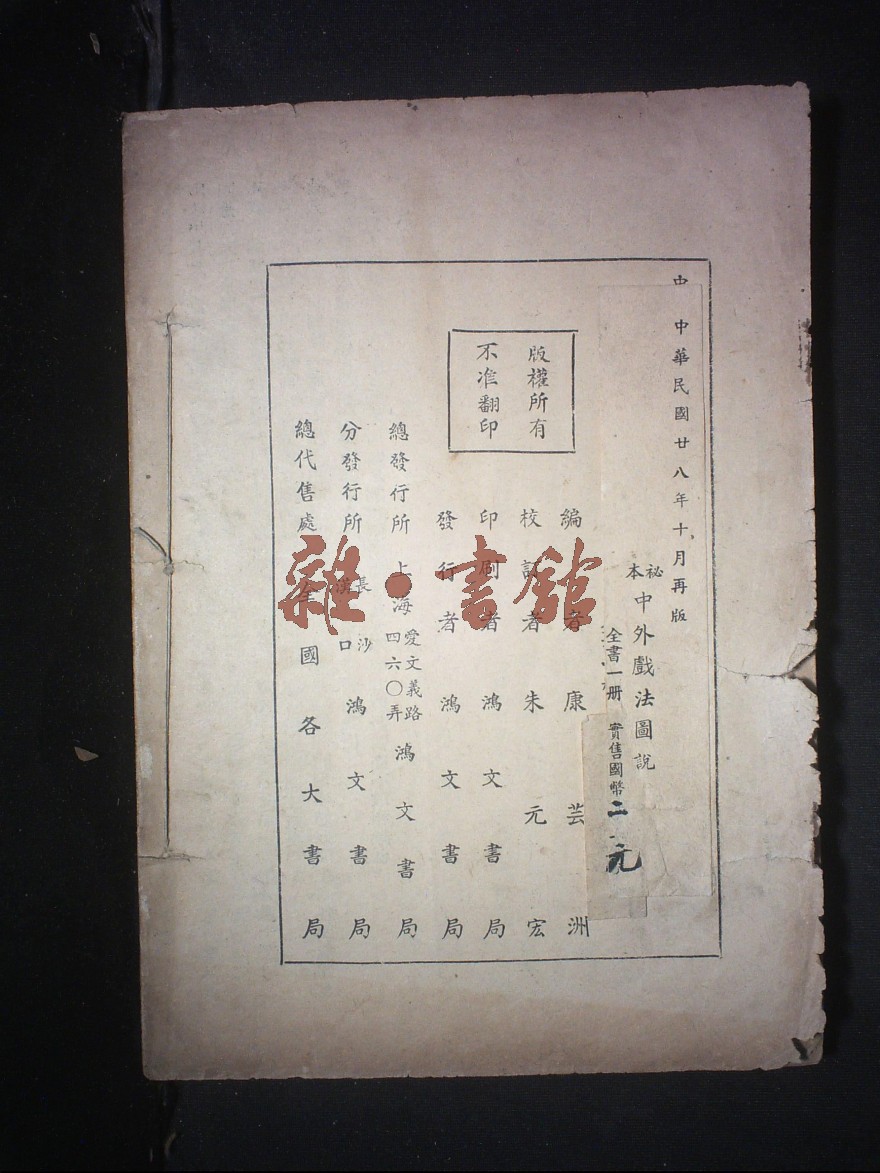 中
中華民國廿八年十月再版
秘本 中外戲法圖說
全書一册 實售國幣二元
版權所有
不准翻印
編者 康芸洲
校訂者 朱元宏
印刷者 鴻文書局
發行者 鴻文書局
總發行所 上海愛文義路四六〇弄 鴻文書局
分發行所 長沙漢口 鴻文書局
總代售處 全國各大書局
雜·書館